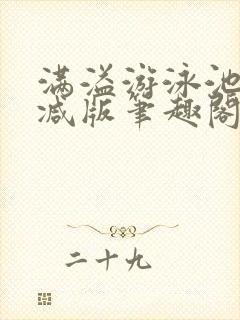 满溢游泳池
减版笔趣阁
二十九